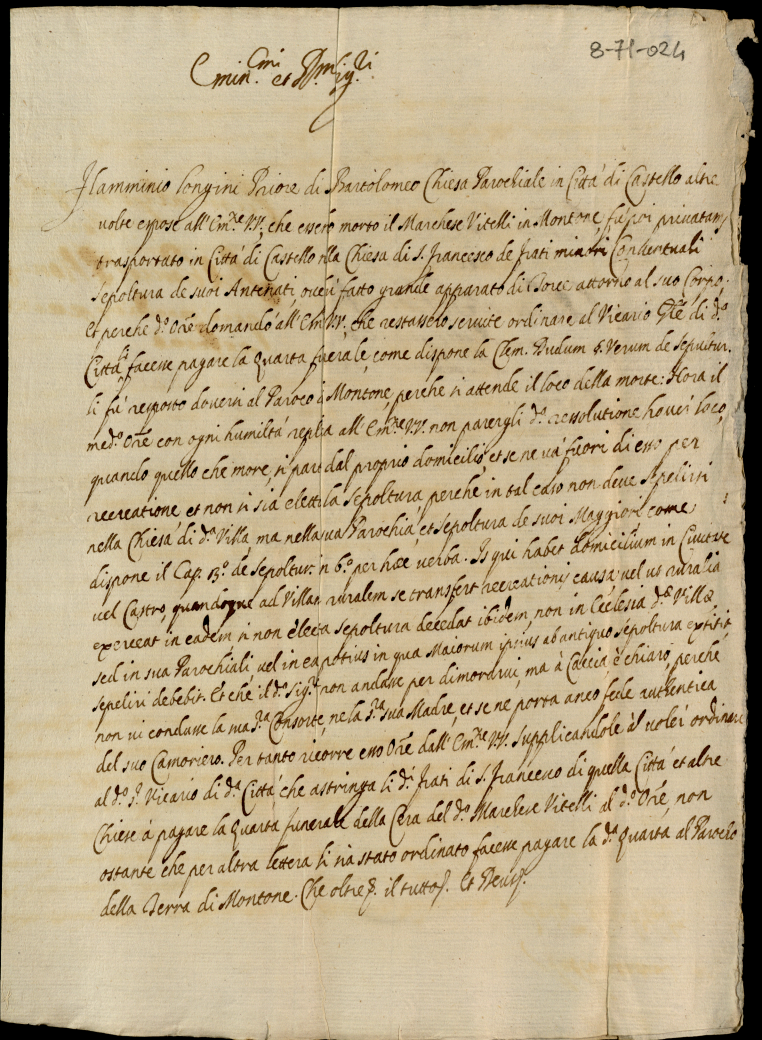 8-71-024
Emin.mi et Rmi Sig.ri
Flamminio Longini Priore di Bartolomeo Chiesa Parochiale in Città di Castello altre
volte espose all'Em.ze VV. che essero morto il Marchese Vitelli in Montone, fu poi privatam.
trasportato in Città di Castello nlla Chiesa di S. Francesco de frati minori Conventuali
sepoltura de suoi Antenati, ove fu fatto grande apparato di Torce attorno al suo Corpo.
Et perche d.o Ore domandò all'Em. VV. che restassero servite ordinare al Vicario Gñle di d.a
Città facesse pagare la quarta funerale, come dispone la Clem. Dudum §. Verum de sepultur.
li fu risposto doversi al Paroco di Montone, perche si attende il loco della morte: Hora il
med.o Ore con ogni humiltà replica all'Em.ze VV. non parergli d.a ressolutione haver loco,
quando quello che more, si parte dal proprio domicilio, et se ne và fuori di esso per
recreatione et non si sia eletta la sepoltura perche in tal caso non deve sepelirsi
nella Chiesa di d.a Villa ma nella sua Parochia et sepoltura de suoi Maggiori come
dispone il Cap. 13.o de sepoltur. in 6.o per hæc verba. Is qui habet domicilium in Civitate
vel Castro, quandoque ad Villam ruralem se transfert recreationis causa, vel ut ruralia
exerceat in eadem si non electa sepoltura decedat ibidem, non in Ecclesia d.æ Villæ
sed in sua Parochiali, vel in ea potius in qua Maiorum ipsius ab antiquo sepoltura extitit,
sepeliri debebit. Et che il d.o Sig.r non andasse per dimorarvi, ma à Caccia è chiaro, perche
non vi condusse la sua S.ra Consorte, ne la S.ra sua Madre, et se ne porta anco fede authentica
del suo Camoriero. Per tanto ricorre esso Ore dall'Em.ze VV. supplicandole à voler ordinare
al d.o S.r Vicario di d.a Città che astringa li d.i frati di S. Francesco di quella Città et altre
Chiese à pagare la quarta funerale della Cera del d.o Marchese Vitelli al d.o Ore, non
ostante che per altra lettera li sia stato ordinato facesse pagare la d.a quarta al Parocho
della Terra di Montone. Che oltre §. il tutto §. Et Deus §.